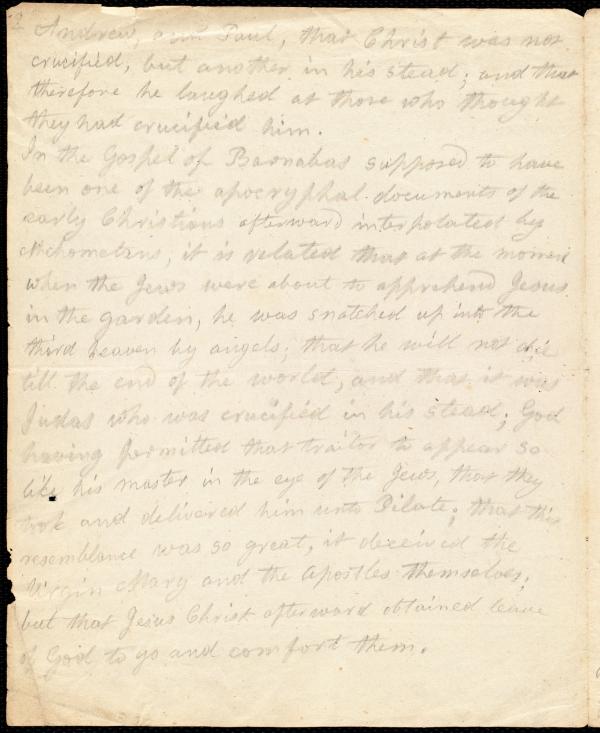 Andrew, and Paul, that Christ was not
crucified, but another in his stead; and that
therefore he laughed at those who thought
they had crucified him.
In the Gospel of Barnabas supposed to have
been one of the apocryphal documents of the
early Christians afterward interpolated by
Mahometans, it is related that at the moment
when the Jews were about to apprehend Jesus
in the garden, he was snatched up into the
third heaven by angels; that he will not die
till the end of the world, and that it was
Judas who was crucified in his stead; God
having permitted that traitor to appear so
like his master in the eye of the Jews, that they
took and delivered him unto Pilate; that this
resemblance was so great, it deceived the
Virgin Mary and the Apostles themselves;
but that Jesus Christ afterward obtained leave
of God to go and comfort them.